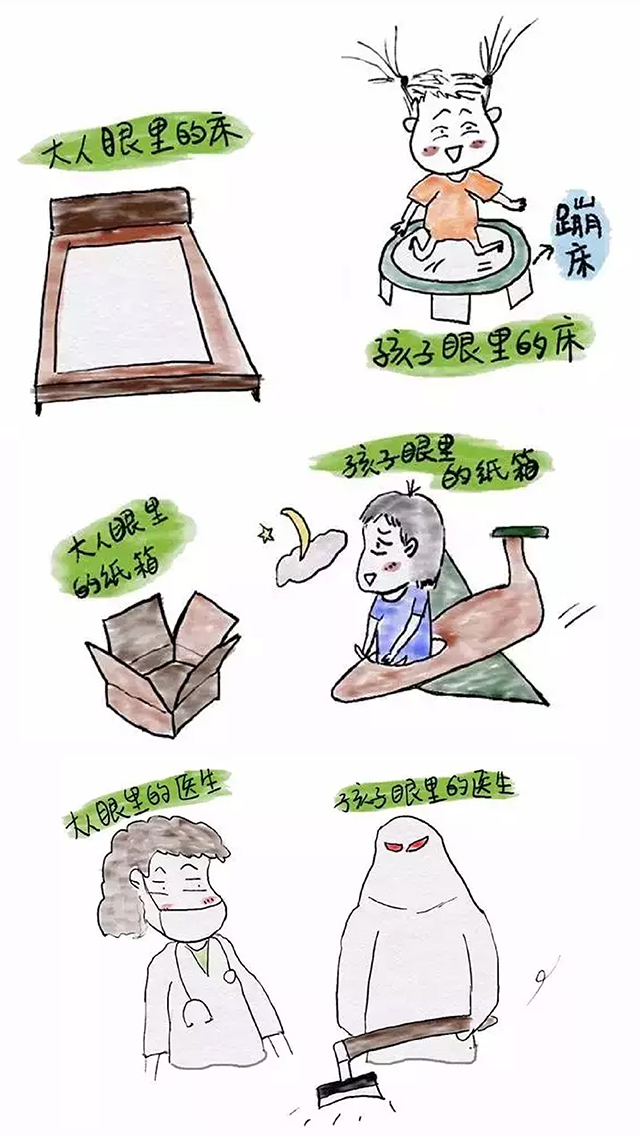 大人眼里的床
蹦
床
孩子眼里的床
孩子眼里
的纸箱
大人眼里
的纸箱
大人眼里的医生
孩子眼里的医生